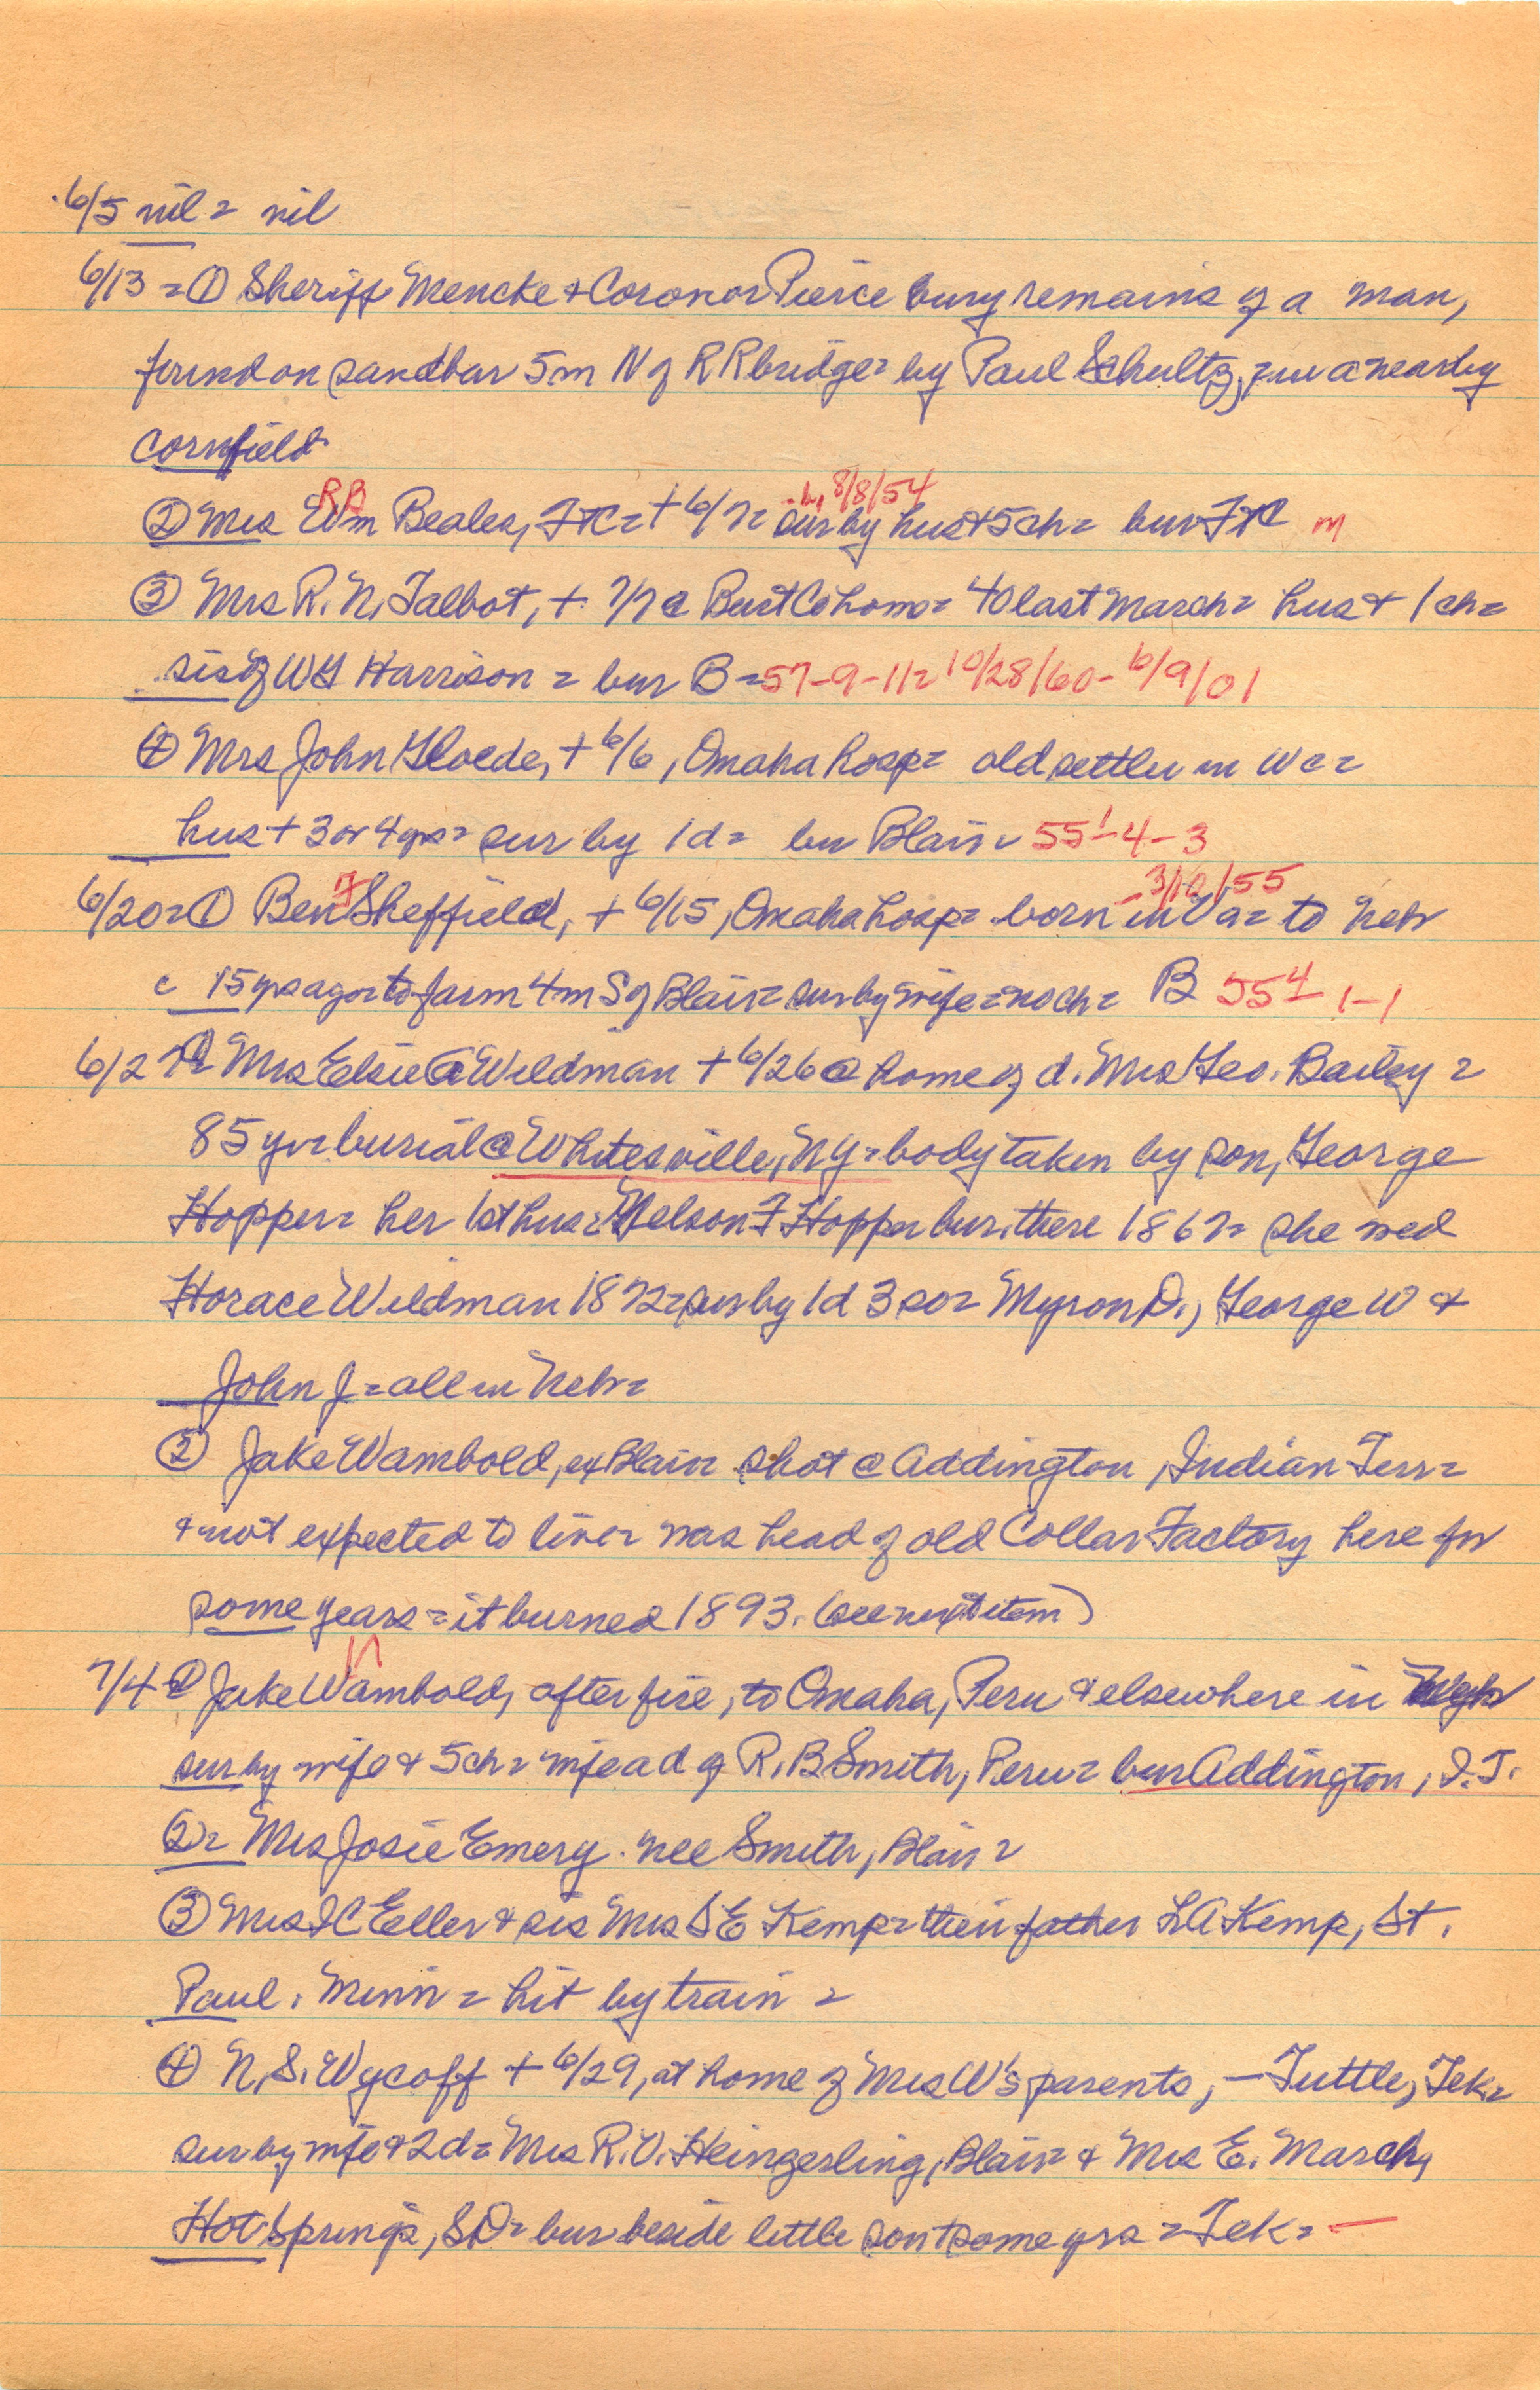 6/5 nil = nil
6/13 = ① Sheriff Mencke & Coronor Pierce bury remains of a man,
found on sandbar 5m N of RR bridge = by Paul Schultz, in a nearby
cornfield
RB -b, 8/8/54
② Mrs Wm Beales, FtC = + 6/7 = sur by hus + 5ch = bur FtC m
③ Mrs R. N. Talbot, + 7/7 @ Burt Co home = 40 last March = hus + 1 ch =
sis of WH Harrison = bur B = 57-9-11 = 10/28/60 - 6/9/01
④ Mrs John Gloede, + 6/6, Omaha hosp = old settler in Wc =
hus + 3 or 4 yrs = sur by 1d = bur Blair = 55¹-4-3
F - 3/10/55
6/20 = ① Ben Sheffield, + 6/15, Omaha hosp = born in Va = to Neb
c 15 yrs ago = to farm 4m S of Blair = sur by wife = no ch = B 55⁴ 1-1
6/27 ① = Mrs Elsie A Wildman + 6/26 @ home of d. Mrs Geo. Bailey =
85 yr = burial @ Whitesville, NY = body taken by son, George
Hopper = her 1st hus = Nelson F Hopper bur. there 1867 = she wed
Horace Wildman 1872 = sur by 1d 3 so = Myron D., George W &
John J = all in Nebr =
② Jake Wambold, ex Blair = shot @ Addington, Indian Terr =
& not expected to live = was head of old Collar Factory here for
some years = it burned 1893. (see next item)
7/4 ① Jake Wambold, after fire, to Omaha, Peru & elsewhere in
sur by wife & 5 ch = wife a d of R. B Smith, Peru = bur Addington, I.T.
② = Mrs Josie Emery. nee Smith, Blair =
③ Mrs IC Eller & sis Mrs SE Kemp = their father LA Kemp, St.
Paul. Minn = hit by train =
④ N. S. Wycoff + 6/29, at home of Mrs W's parents, — Tuttle, Tek =
sur by wife & 2d = Mrs R. V. Heingerling, Blair = & Mrs E. March,
Hot Springs, SD = bur beside little son + some yrs = Tek = —